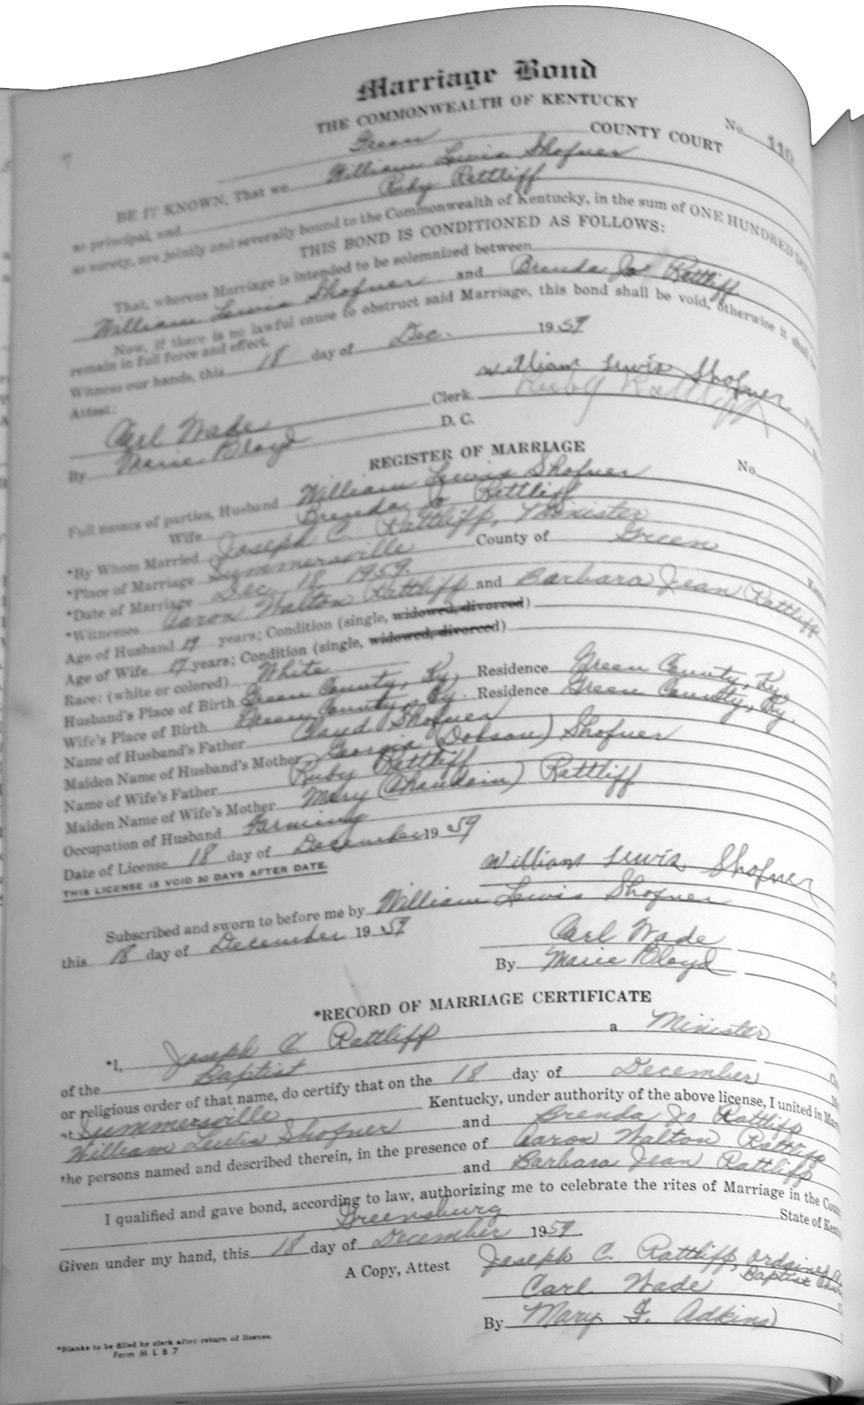 Marriage Bond
THE COMMONWEALTH OF KENTUCKY
No. 110
Green COUNTY COURT
BE IT KNOWN, That we William Lewis Shofner
as principal, and Ruby Rattliff
as surety, are jointly and severally bound to the Commonwealth of Kentucky, in the sum of ONE HUNDRED
THIS BOND IS CONDITIONED AS FOLLOWS:
That, whereas Marriage is intended to be solemnized between
William Lewis Shofner and Brenda Jo Rattliff
Now, if there is no lawful cause to obstruct said Marriage, this bond shall be void, otherwise it
remain in full force and effect.
Witness our hands, this 18 day of Dec. 1959
William Lewis Shofner
Attest: Ruby Rattliff
Carl Wade Clerk.
By Marie Bloyd D. C.
REGISTER OF MARRIAGE
No.
Full names of parties, Husband William Lewis Shofner
Wife Brenda Jo Rattliff
*By Whom Married Joseph C. Rattliff, Minister
*Place of Marriage Summersville County of Green
*Date of Marriage Dec. 18, 1959
*Witnesses Aaron Walton Rattliff and Barbara Jean Rattliff
Age of Husband 19 years; Condition (single, widowed, divorced)
Age of Wife 17 years; Condition (single, widowed, divorced)
Race: (white or colored) White
Husband's Place of Birth Green County, Ky. Residence Green County, Ky.
Wife's Place of Birth Green County, Ky. Residence Green County, Ky.
Name of Husband's Father Claud Shofner
Maiden Name of Husband's Mother Georgia (Dobson) Shofner
Name of Wife's Father Ruby Rattliff
Maiden Name of Wife's Mother Mary (Chaudoin) Rattliff
Occupation of Husband Farming
Date of License 18 day of December 1959
THIS LICENSE IS VOID 30 DAYS AFTER DATE.
William Lewis Shofner
Subscribed and sworn to before me by William Lewis Shofner
this 18 day of December 1959
Carl Wade
By Marie Bloyd
*RECORD OF MARRIAGE CERTIFICATE
*I, Joseph C. Rattliff a Minister
of the Baptist
or religious order of that name, do certify that on the 18 day of December
at Summersville Kentucky, under authority of the above license, I united in
William Lewis Shofner and Brenda Jo Rattliff
the persons named and described therein, in the presence of Aaron Walton Rattliff
and Barbara Jean Rattliff
I qualified and gave bond, according to law, authorizing me to celebrate the rites of Marriage in the
Greensburg State of
Given under my hand, this 18 day of December 1959.
Joseph C. Rattliff, ordained
Baptist
A Copy, Attest Carl Wade
By Mary F. Adkins
*Blanks to be filled by clerk after return of license.
Form M L B 7